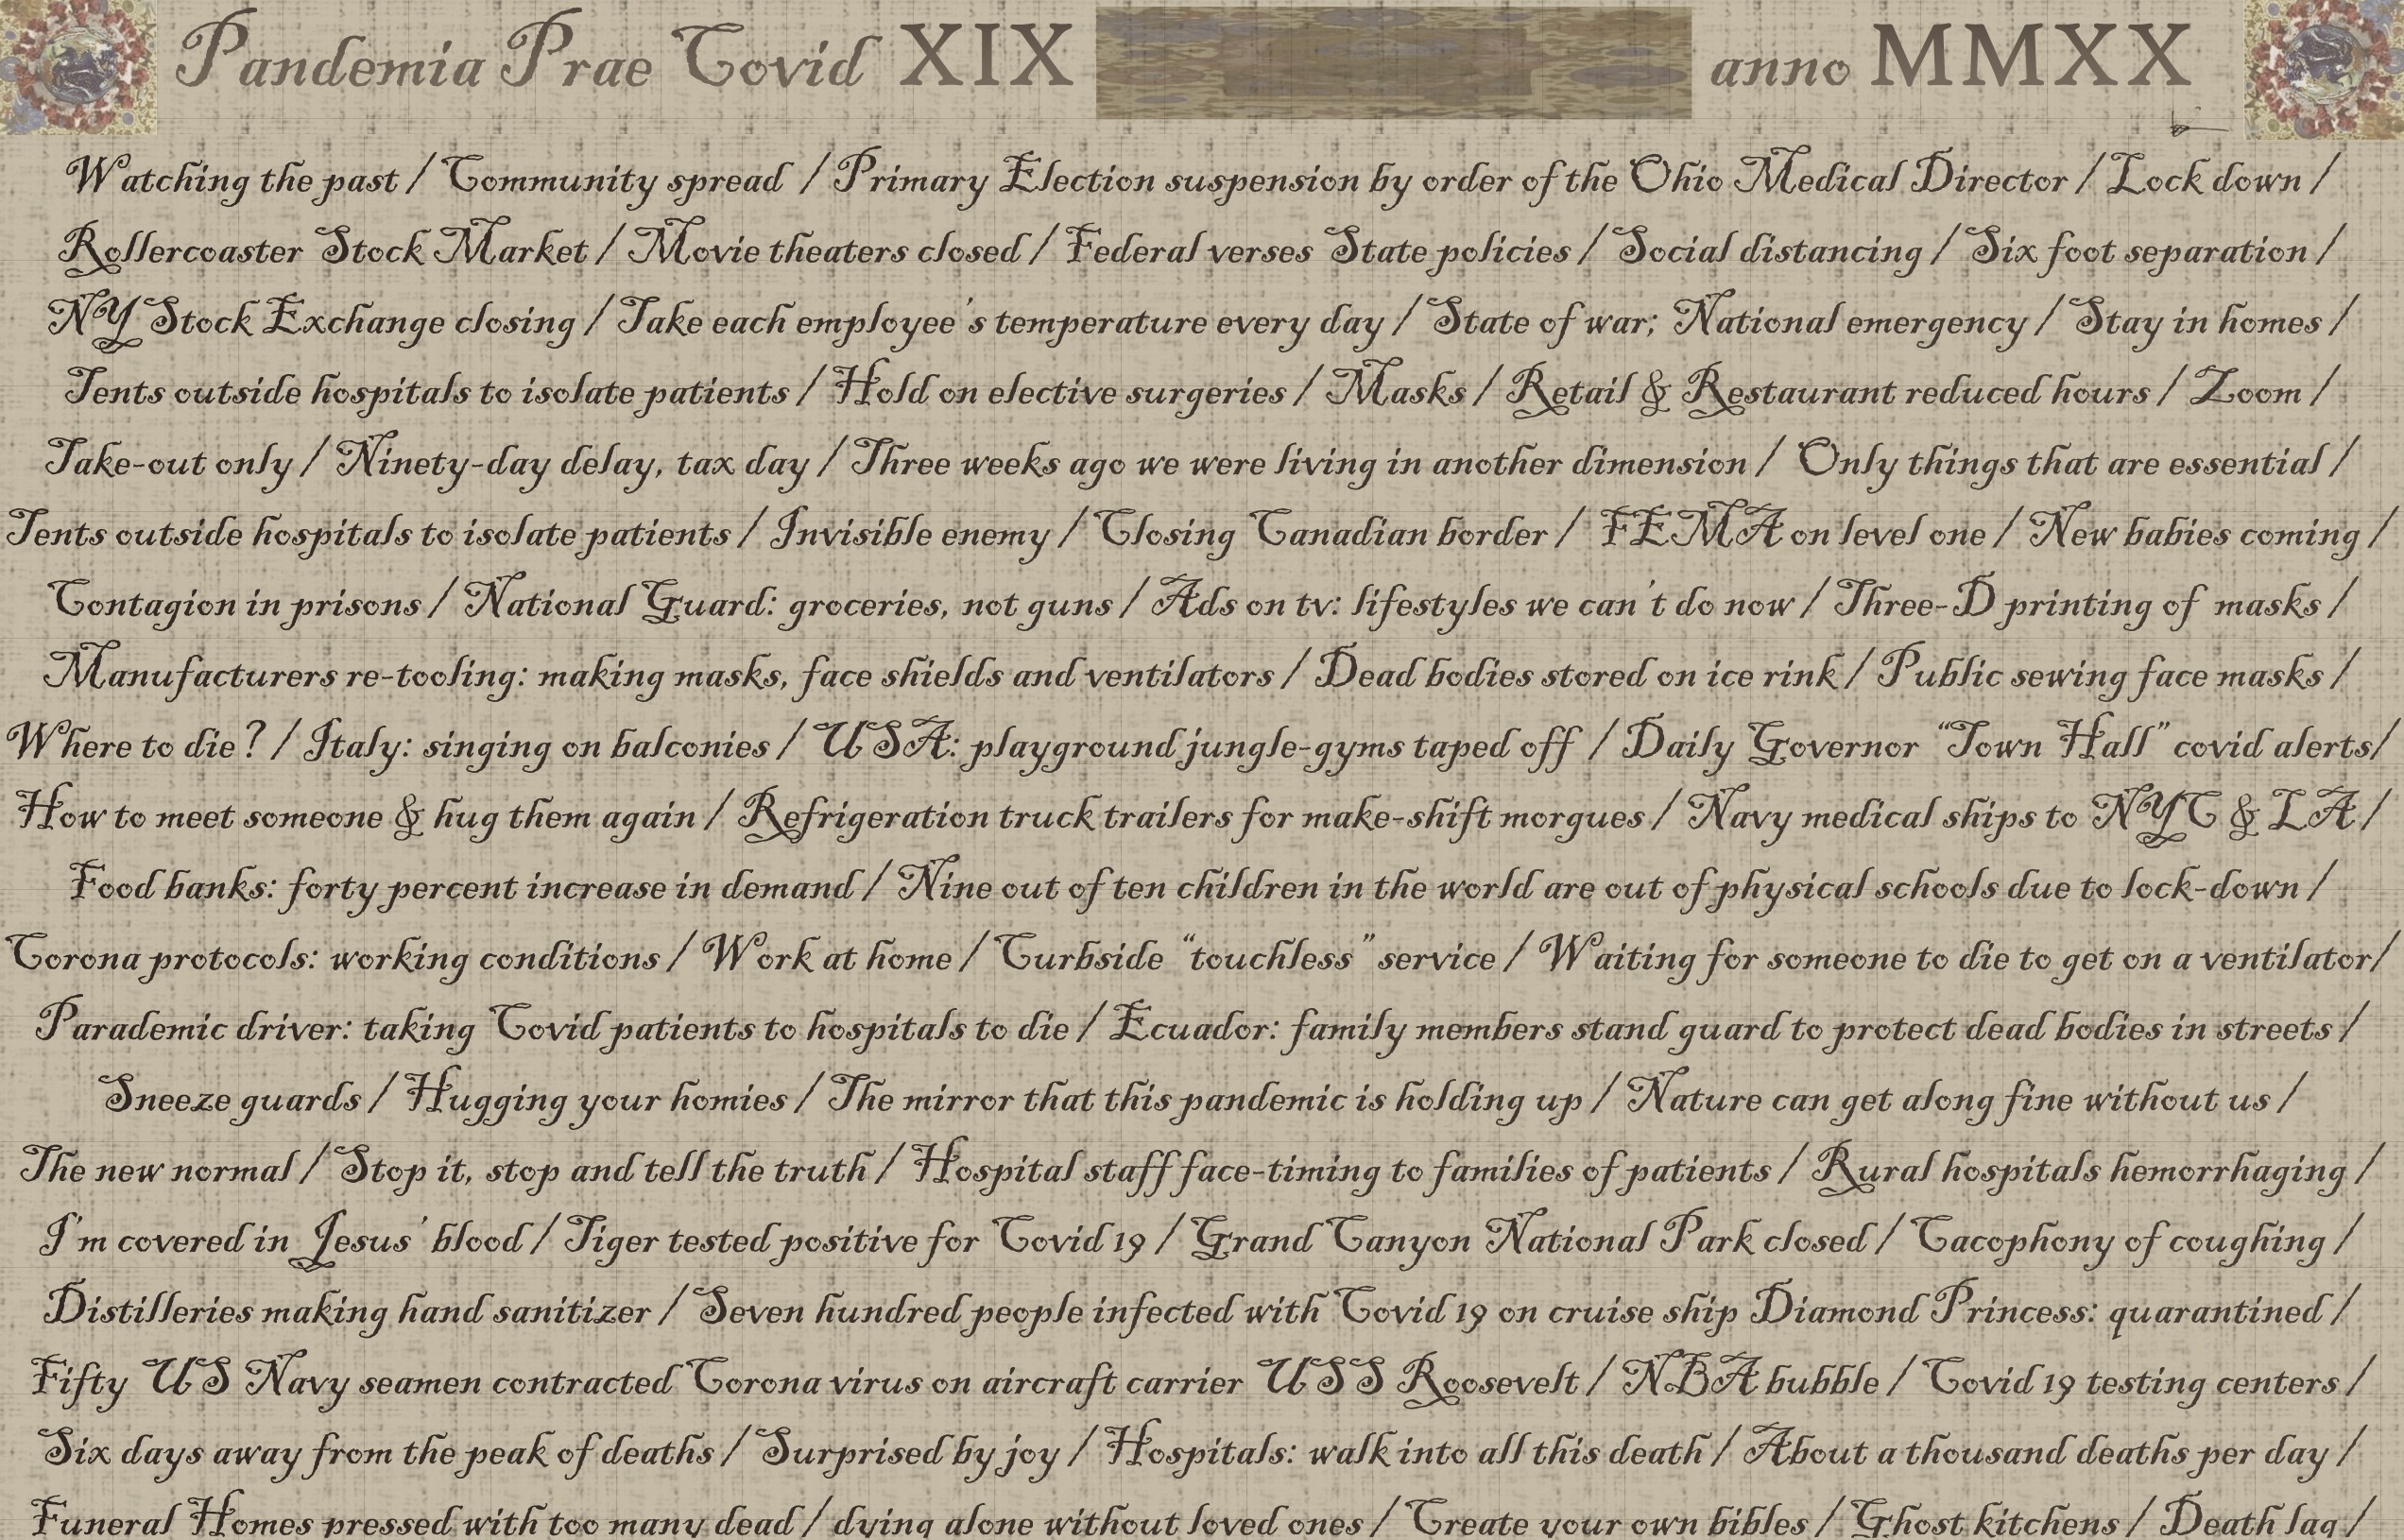 Pandemia Prae Covid XIX anno MMXX
Watching the past / Community spread / Primary Election suspension by order of the Ohio Medical Director / Lock down /
Rollercoaster Stock Market / Movie theaters closed / Federal verses State policies / Social distancing / Six foot separation /
NY Stock Exchange closing / Take each employee's temperature every day / State of war; National emergency / Stay in homes /
Tents outside hospitals to isolate patients / Hold on elective surgeries / Masks / Retail & Restaurant reduced hours / Zoom /
Take-out only / Ninety-day delay, tax day / Three weeks ago we were living in another dimension / Only things that are essential /
Tents outside hospitals to isolate patients / Invisible enemy / Closing Canadian border / FEMA on level one / New babies coming /
Contagion in prisons / National Guard: groceries, not guns / Ads on tv: lifestyles we can't do now / Three-D printing of masks /
Manufacturers re-tooling: making masks, face shields and ventilators / Dead bodies stored on ice rink / Public sewing face masks /
Where to die? / Italy: singing on balconies / USA: playground jungle-gyms taped off / Daily Governor “Town Hall” covid alerts/
How to meet someone & hug them again / Refrigeration truck trailers for make-shift morgues / Navy medical ships to NYC & LA /
Food banks: forty percent increase in demand / Nine out of ten children in the world are out of physical schools due to lock-down /
Corona protocols: working conditions / Work at home / Curbside “touchless” service / Waiting for someone to die to get on a ventilator/
Parademic driver: taking Covid patients to hospitals to die / Ecuador: family members stand guard to protect dead bodies in streets /
Sneeze guards / Hugging your homies / The mirror that this pandemic is holding up / Nature can get along fine without us /
The new normal / Stop it, stop and tell the truth / Hospital staff face-timing to families of patients / Rural hospitals hemorrhaging /
I'm covered in Jesus' blood / Tiger tested positive for Covid 19 / Grand Canyon National Park closed / Cacophony of coughing /
Distilleries making hand sanitizer / Seven hundred people infected with Covid 19 on cruise ship Diamond Princess: quarantined /
Fifty US Navy seamen contracted Corona virus on aircraft carrier USS Roosevelt / NBA bubble / Covid 19 testing centers /
Six days away from the peak of deaths / Surprised by joy / Hospitals: walk into all this death / About a thousand deaths per day /
Funeral Homes pressed with too many dead / dying alone without loved ones / Create your own bibles / Ghost kitchens / Death lag /